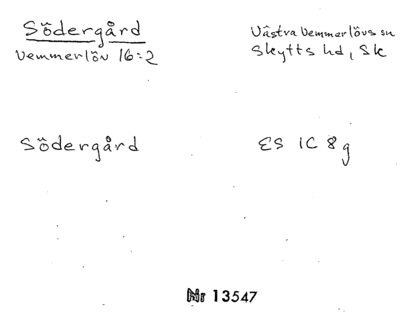 Södergård
Vemmerlöv 16:2
Västra Vemmerlövs sn
Skytts hd, Sk
Södergård
ES 1C 8g
Nr 13547